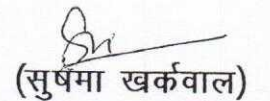 (सुषमा खर्कवाल)